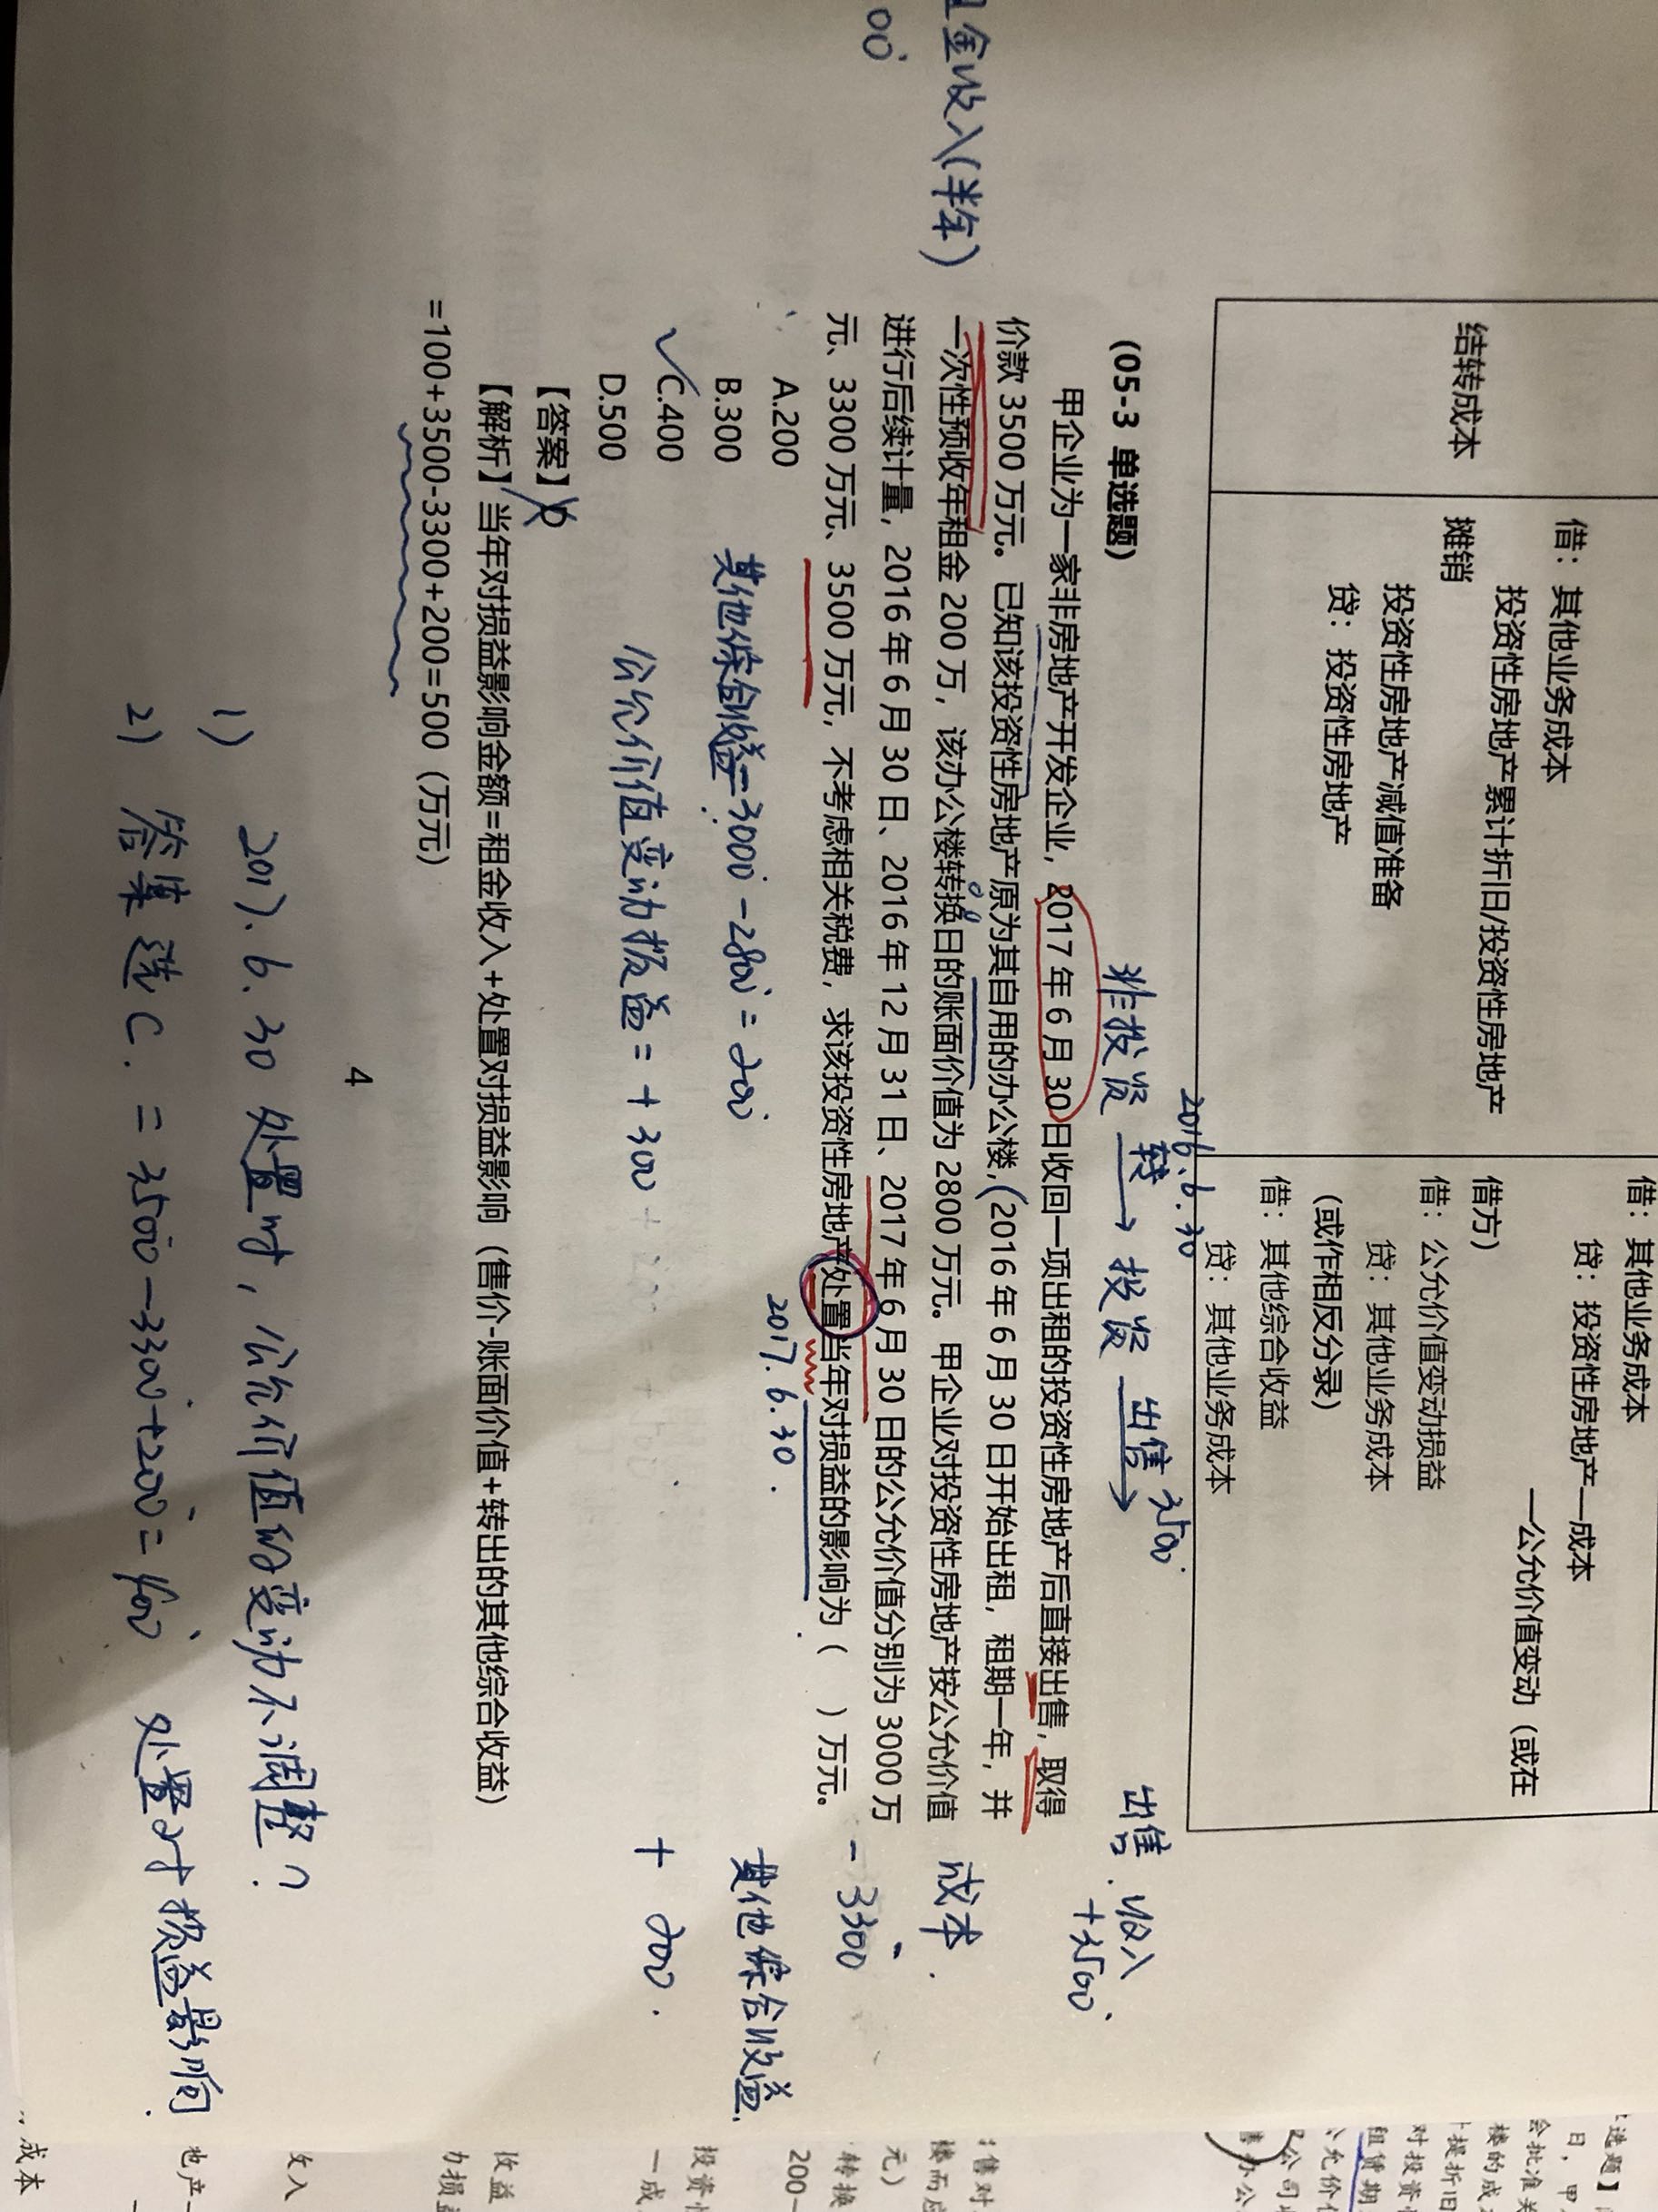 借：其他业务成本
贷：投资性房地产—成本
—公允价值变动（或在
借方）
借：公允价值变动损益
贷：其他业务成本
（或作相反分录）
借：其他综合收益
贷：其他业务成本
结转成本
借：其他业务成本
投资性房地产累计折旧/投资性房地产
摊销
投资性房地产减值准备
贷：投资性房地产
2016.6.30
非投资 转→ 投资 出售→ 3500
(05-3 单选题)
甲企业为一家非房地产开发企业，2017 年 6 月 30 日收回一项出租的投资性房地产后直接出售，取得
价款 3500 万元。已知该投资性房地产原为其自用的办公楼，(2016 年 6 月 30 日开始出租，租期一年，并
一次性预收年租金 200 万，该办公楼转换日的账面价值为 2800 万元。甲企业对投资性房地产按公允价值
进行后续计量，2016 年 6 月 30 日、2016 年 12 月 31 日、2017 年 6 月 30 日的公允价值分别为 3000 万
元、3300 万元、3500 万元，不考虑相关税费，求该投资性房地产处置当年对损益的影响为（ ）万元。
2017.6.30.
A.200
B.300
C.400
D.500
其他综合收益=3000-2800=200
公允价值变动损益=+300
【答案】D
【解析】当年对损益影响金额=租金收入+处置对损益影响（售价-账面价值+转出的其他综合收益）
=100+3500-3300+200=500（万元）
出售.收入
+3500
成本.
-3300
其他综合收益.
+200.
金收入(半年)
00
1) 2017.6.30 处置时，公允价值的变动不调整？
2) 答案选C. =3500-3300+200=400 处置对损益影响.
4
选题】
日，甲
会批准关
楼的成
计提折旧
对投资
租赁期
公允价
公司
售办公
售对
楼而
元）
转换
200-
投资
一成
收益
力损益
收入
也产-
成本